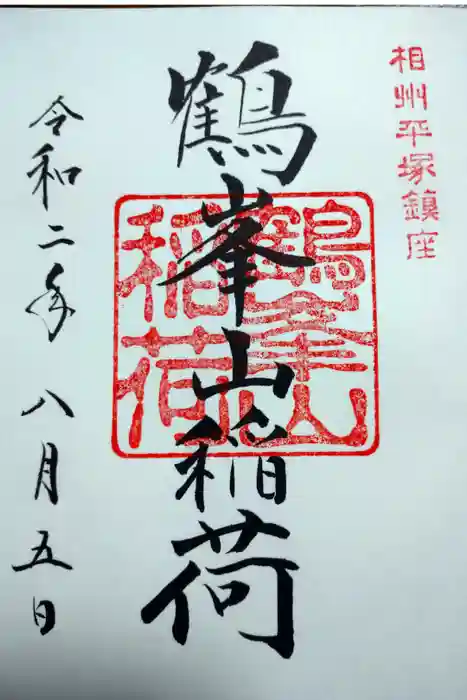 相州平塚鎮座
鶴峯山稲荷
鶴峯山
稲荷
令和二年 八月五日